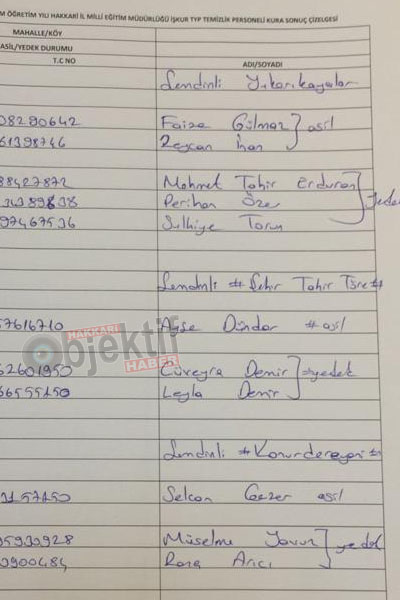 M ÖĞRETİM YILI HAKKARİ İL MİLLİ EĞİTİM MÜDÜRLÜĞÜ İŞKUR TYP TEMİZLİK PERSONELİ KURA SONUÇ ÇİZELGESİ
MAHALLE/KÖY
ASİL/YEDEK DURUMU
T.C NO ADI/SOYADI
Şemdinli
08290642 Faize Gülmez asil
61398746 Zeycan İnan
88427872 Mehmet Tahir Erduran
Perihan Özer yedek
97467536 Sulhiye Torun
Şemdinli # Şehit Tahir Töre #
57616710 Ayşe Dündar # asil
HAKKARİ
Objektif
HABER
62601950 Cüveyra Demir yedek
66555150 Leyla Demir
Şemdinli #
31157150 Selcan Gezer asil
05930928 Müselme Yavuz yedek
0900484 Rona Arıcı